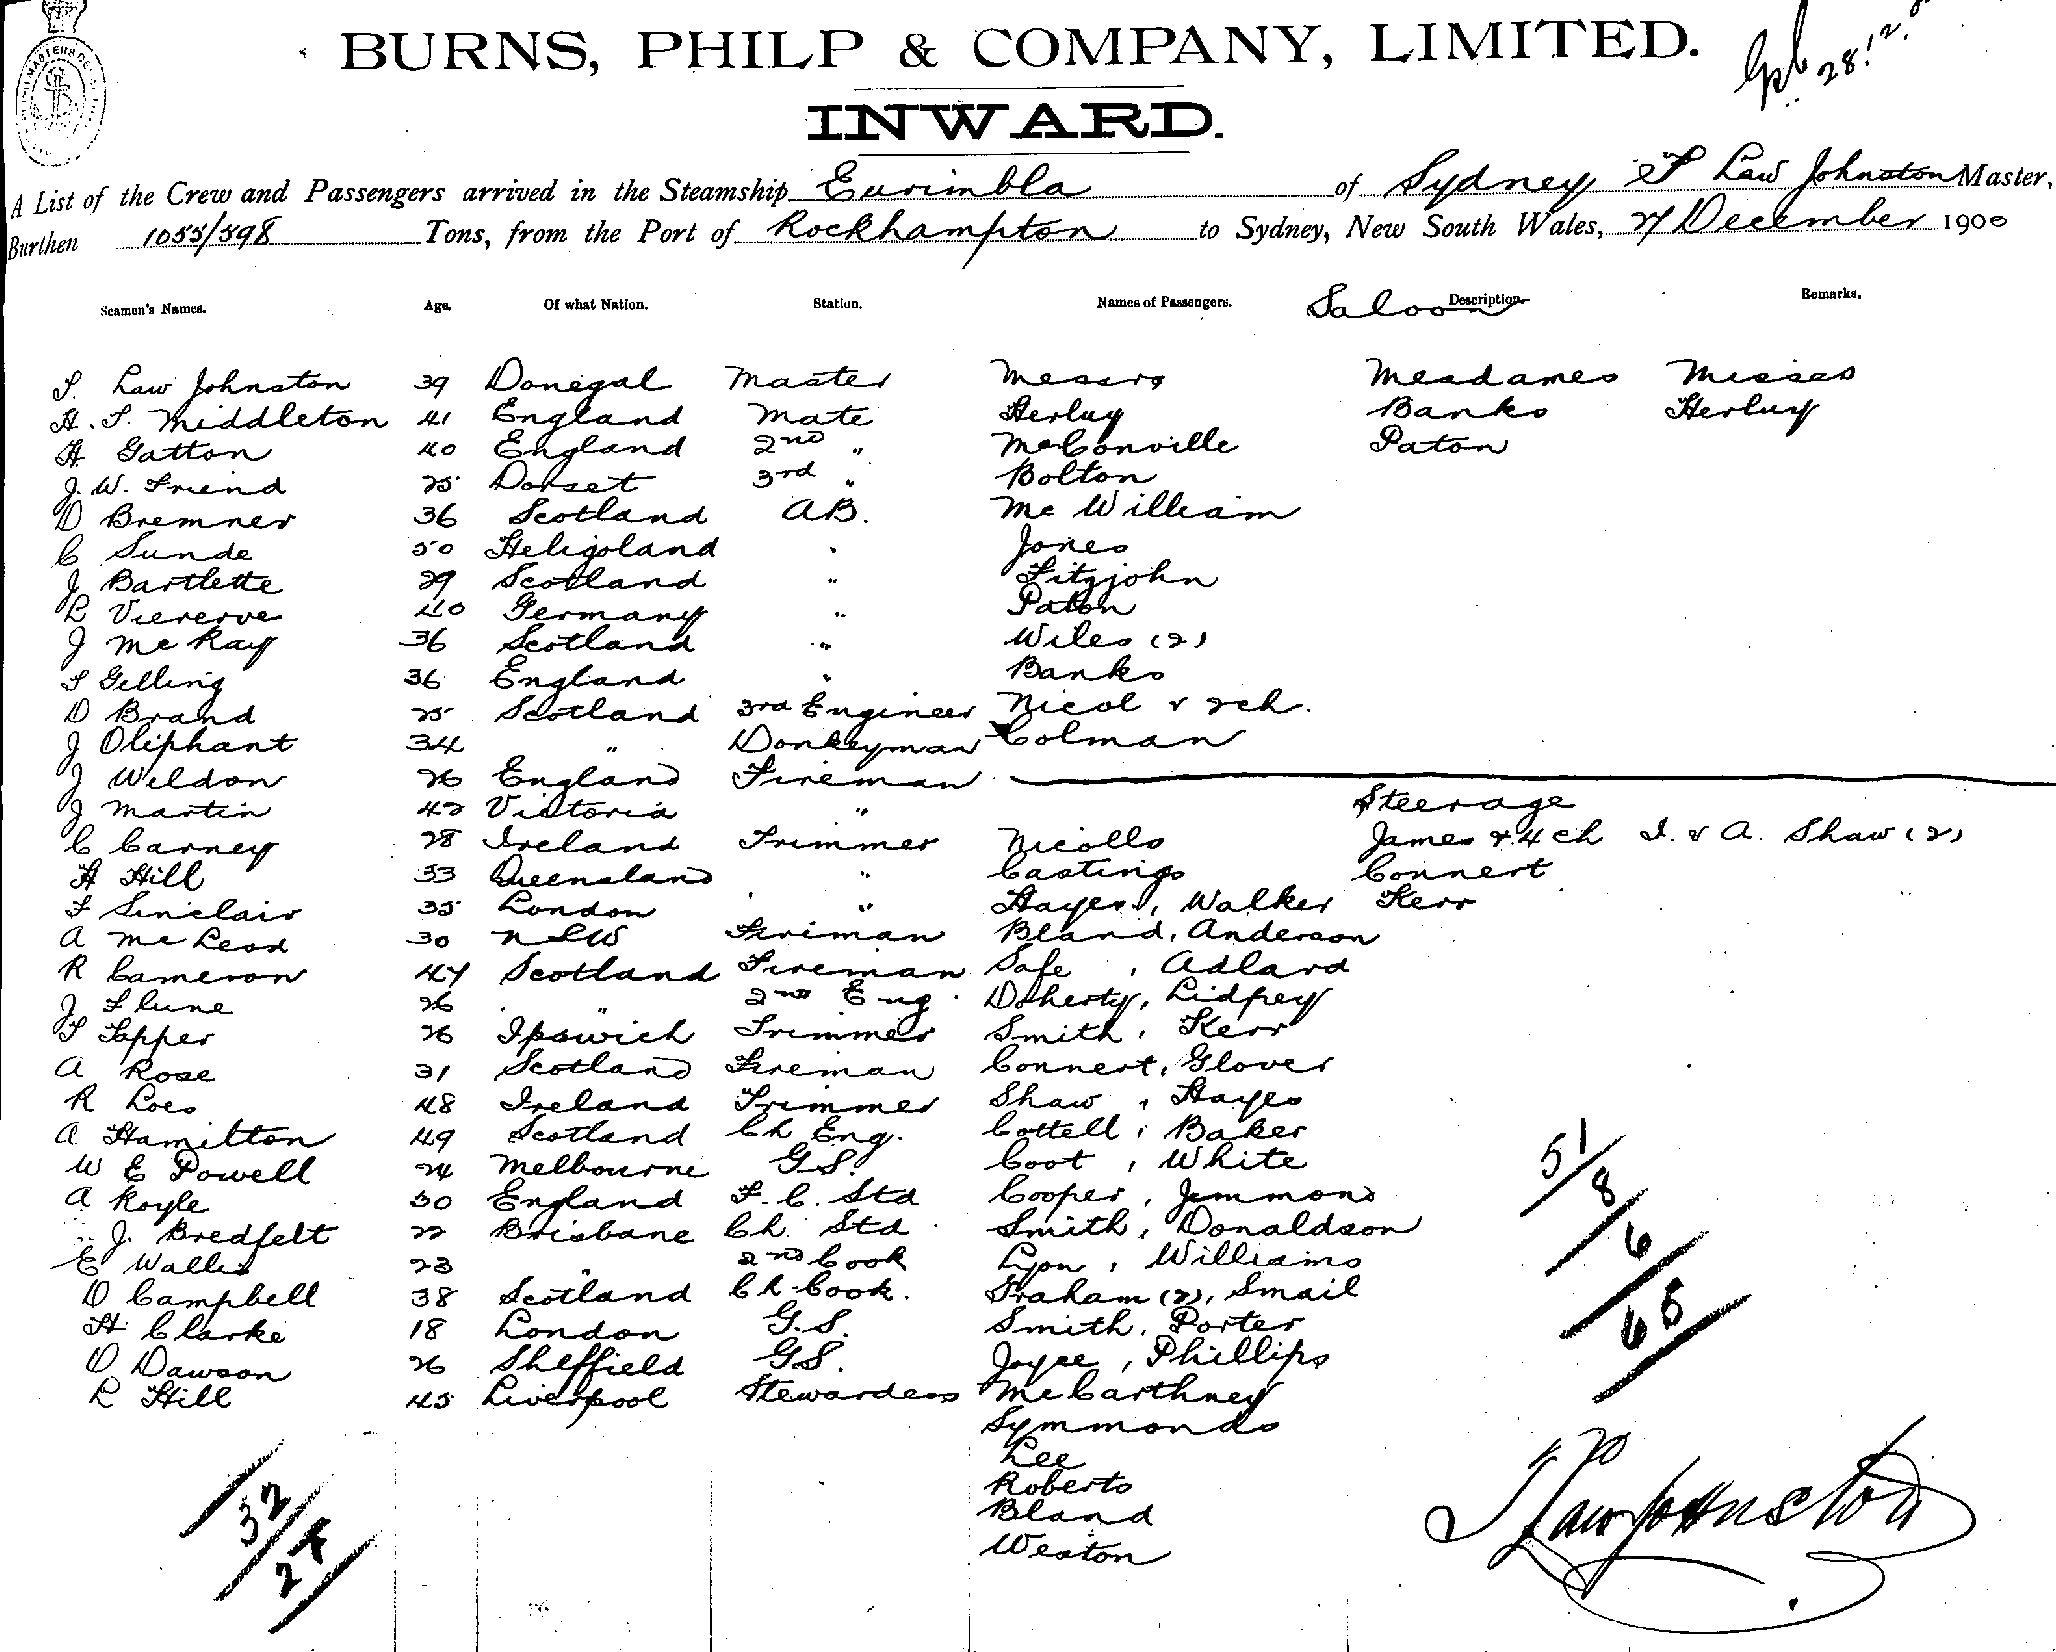 BURNS, PHILP & COMPANY, LIMITED.
INWARD.
A List of the Crew and Passengers arrived in the Steamship Eurimbla of Sydney T Law Johnston Master,
Burthen 1055/598 Tons, from the Port of Rockhampton to Sydney, New South Wales, 27 December 1900
Seamen's Names. Age. Of what Nation. Station. Names of Passengers. Saloon Description Remarks.
T. Law Johnston 39 Donegal Master Messrs Mesdames Misses
H. T. Middleton 41 England Mate Herluy Banks Herluy
H Gatton 40 England 2nd " McConville Paton
J. W. Friend 25 Dorset 3rd " Bolton
D Bremner 36 Scotland AB. Mc William
C Sunde 50 Heligoland " Jones
J Bartlette 29 Scotland " Fitzjohn
L Viererve 40 Germany " Paton
J McKay 36 Scotland " Wiles (2)
T Gelling 36 England " Banks
D Brand 25 Scotland 3rd Engineer Nicol & 2ch.
J Oliphant 34 " Donkeyman Colman
J Weldon 26 England Fireman
J Martin 42 Victoria " Steerage
C Carney 28 Ireland Trimmer Nicolls James & 4 ch I. & A. Shaw (2)
H Hill 33 Queensland " Castings Connert
F Sinclair 35 London " Hayes, Walker Kerr
A McLeod 30 NSW Firiman Bland, Anderson
R Cameron 47 Scotland Fireman Safe, Adlard
J Slune 26 " 2nd Eng. Doherty, Lidfrey
T Tapper 26 Ipswich Trimmer Smith, Kerr
A Rose 31 Scotland Fireman Connert, Glover
R Loes 48 Ireland Trimmer Shaw, Hayes
A Hamilton 49 Scotland Ch Eng. Cottell, Baker
W E Powell 24 Melbourne G.S. Coot, White
A Royle 30 England F. C. Std Cooper, Jemmons
J. Bredfelt 22 Brisbane Ch. Std Smith, Donaldson
E Wallis 23 " 2nd Cook Lyon, Williams
D Campbell 38 Scotland Ch Cook. Graham (2), Smail
H Clarke 18 London G.S. Smith, Porter
D Dawson 26 Sheffield G.S. Joyce, Phillips
L Hill 45 Liverpool Stewardess McCarthney
Symmonds
Lee
Roberts
Bland
Weston
51
8
6
65
32
27
T Law Johnston